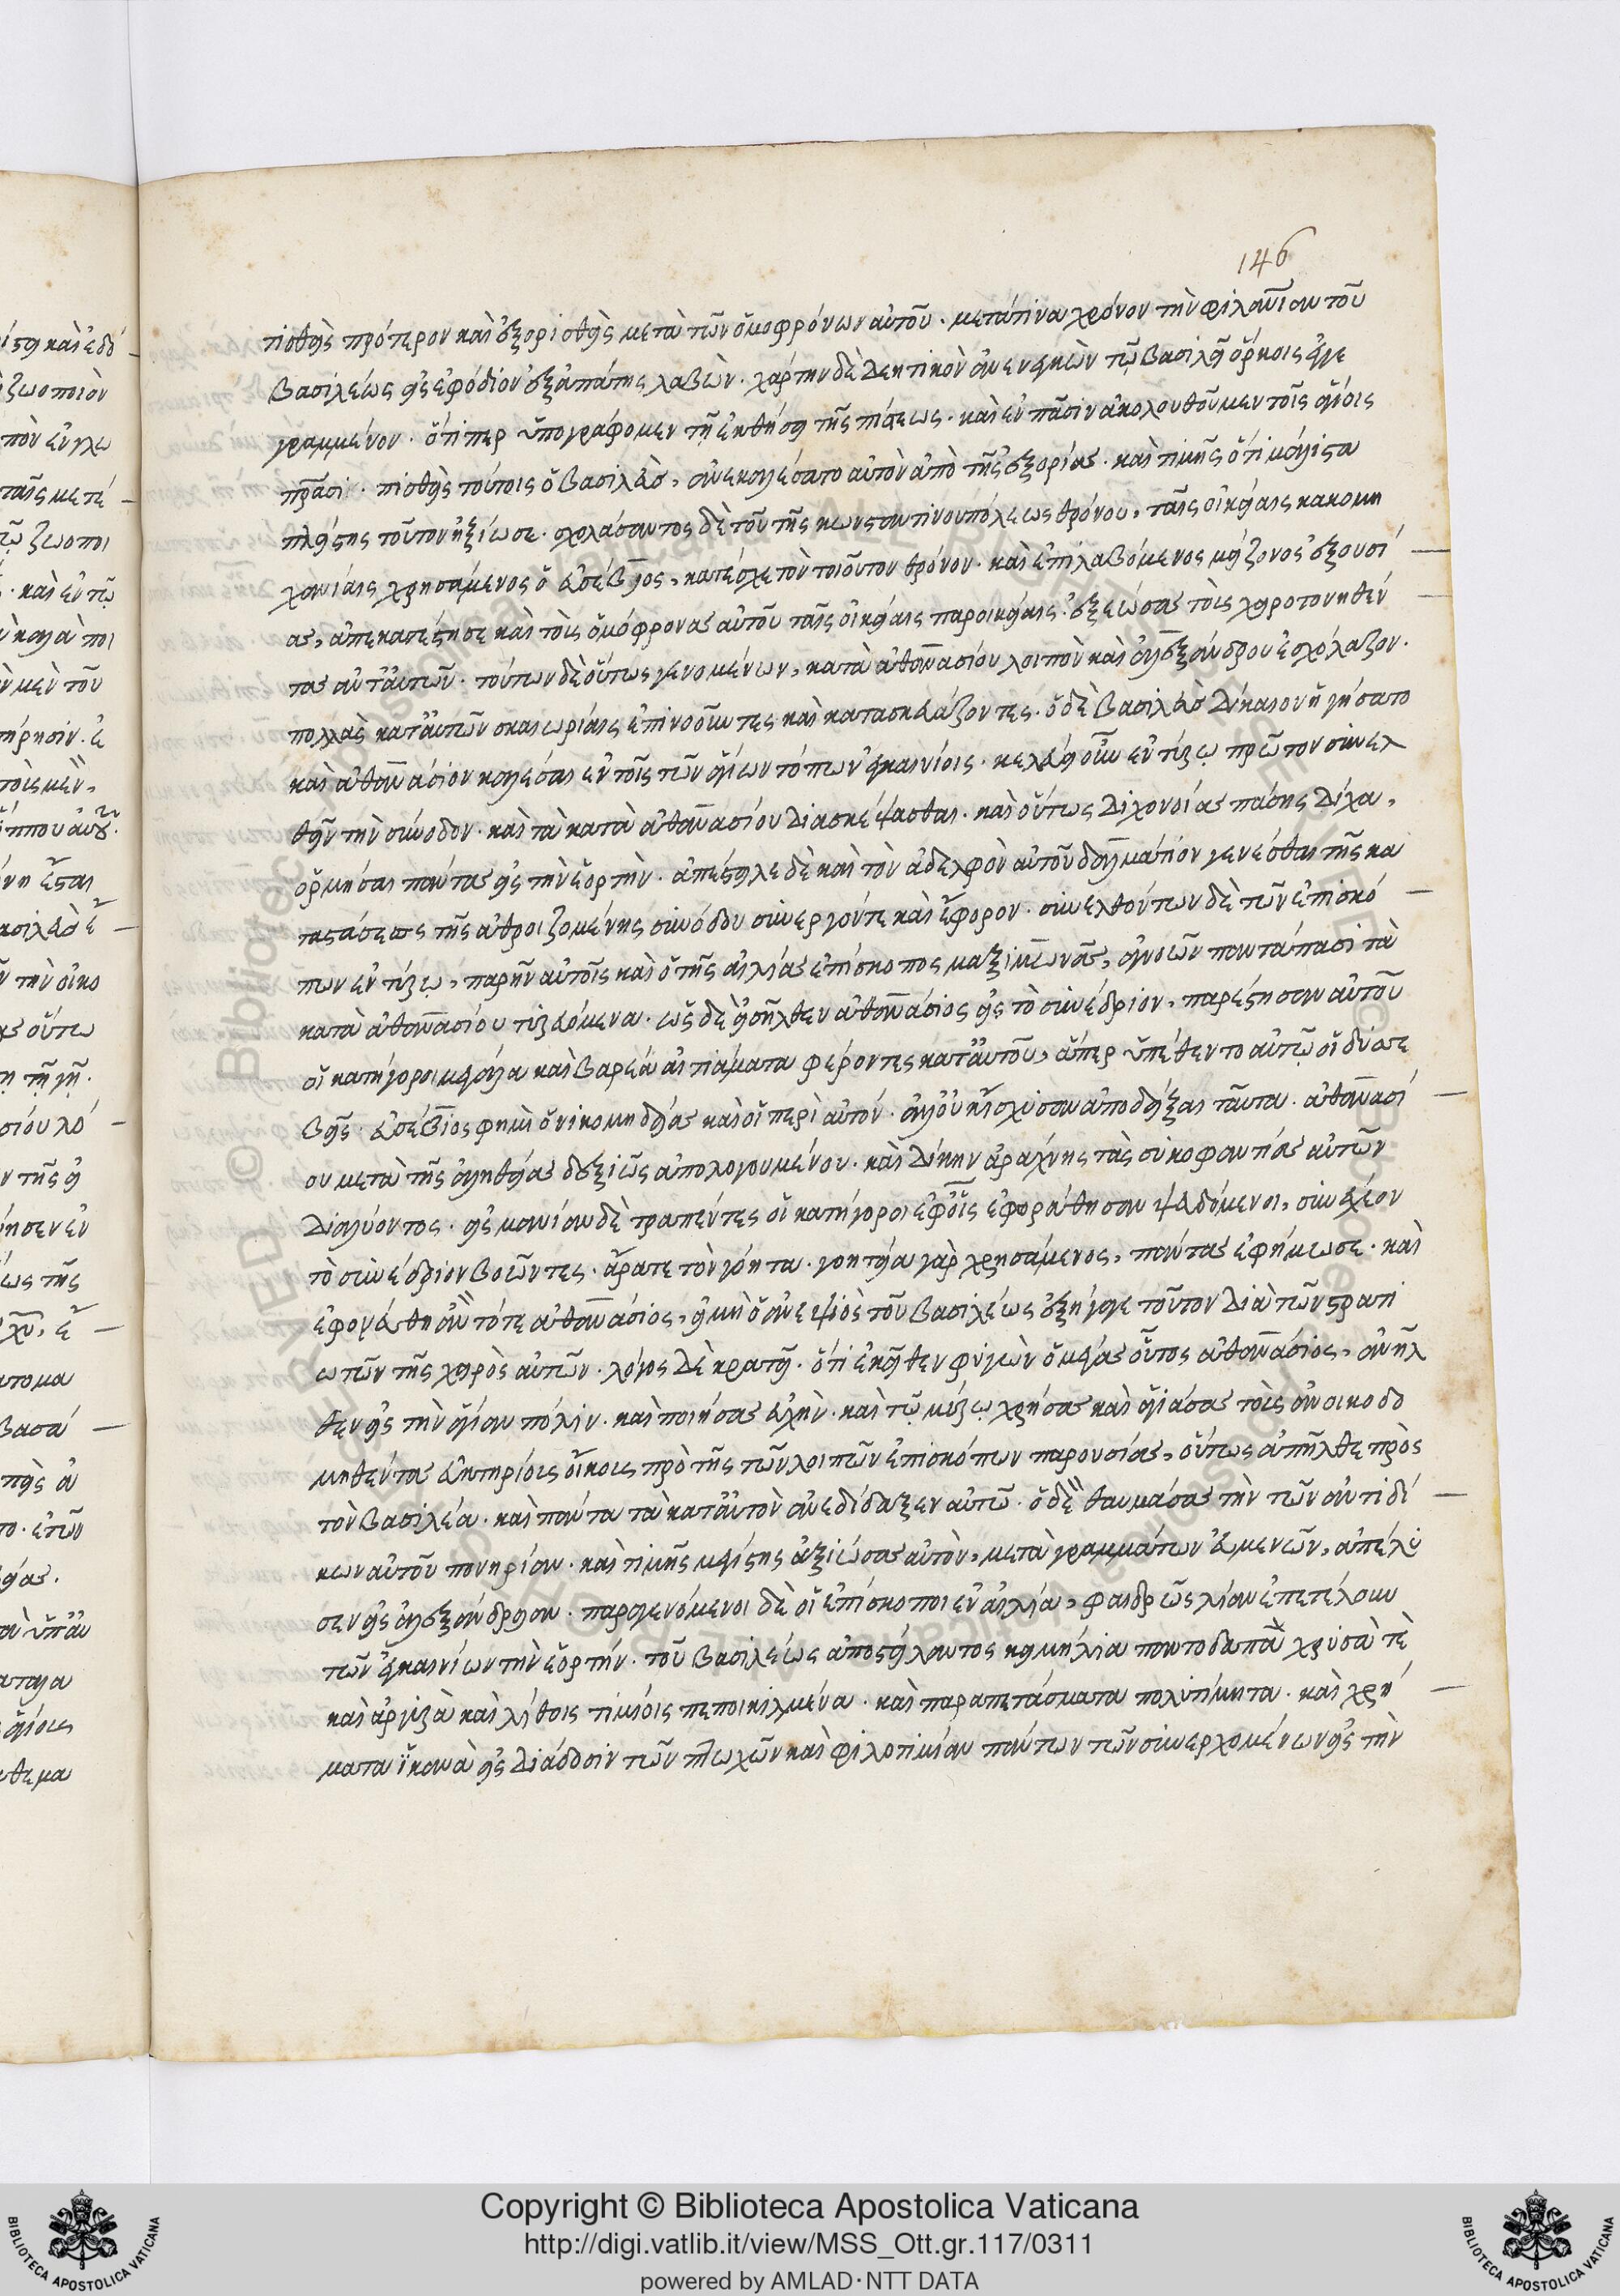 146
τισθεὶς πρότερον καὶ ἐξορισθεὶς μετὰ τῶν ὁμοφρόνων αὐτοῦ. μετά τινα χρόνον τὴν φιλανίαν τοῦ
βασιλέως εἰς ἐφόδιον ἐξαπάτης λαβὼν. χάρτην δὲ δεητικὸν ἀνενεγκὼν τῷ βασιλεῖ ὅρκοις ἐγγε
γραμμένον. ὅτι περ ὑπογράφομεν τῇ ἐκθέσει τῆς πίστεως. καὶ ἐν πᾶσιν ἀκολουθοῦμεν τοῖς ἁγίοις
πατράσι. πισθεὶς τούτοις ὁ βασιλεὺς, ἀνεκαλέσατο αὐτὸν ἀπὸ τῆς ἐξορίας. καὶ τιμῆς ὅτι μάλιστα
πλείστης τοῦτον ἠξίωσε. σχολάσαντος δὲ τοῦ τῆς κωνσταντινουπόλεως θρόνου, ταῖς οἰκείαις κακομη
χανίαις χρησάμενος ὁ εὐσέβιος, κατέσχε τὸν τοιοῦτον θρόνον. καὶ ἐπιλαβόμενος μείζονος ἐξουσί
ας, ἀπεκατέστησε καὶ τοὺς ὁμόφρονας αὐτοῦ ταῖς οἰκείαις παροικίαις. ἐξεώσας τοὺς χειροτονηθέν
τας ἀντ' αὐτῶν. τούτων δὲ οὕτως γενομένων, κατὰ ἀθανασίου λοιπὸν καὶ ἀλεξάνδρου ἐσχόλαζον.
πολλὰς κατ' αὐτῶν σκαιωρίαις ἐπινοοῦντες καὶ κατασκευάζοντες. ὁ δὲ βασιλεὺς δίκαιον ἡγήσατο
καὶ ἀθανάσιον καλέσαι ἐν τοῖς τῶν ἁγίων τόπων ἐγκαινίοις. κελεύει οὖν ἐν τύρῳ πρῶτον συνελ
θεῖν τὴν σύνοδον. καὶ τὰ κατὰ ἀθανασίου διασκέψασθαι. καὶ οὕτως διχονοίας πάσης δίχα,
ὁρμῆσαι πάντας εἰς τὴν ἑορτὴν. ἀπέστειλε δὲ καὶ τὸν ἀδελφὸν αὐτοῦ δαλμάτιον γενέσθαι τῆς κα
ταστάσεως τῆς ἀθροιζομένης συνόδου συνεργόν τε καὶ ἔφορον. συνελθόντων δὲ τῶν ἐπισκό
πων ἐν τύρῳ, παρῆν αὐτοῖς καὶ ὁ τῆς αἰλίας ἐπίσκοπος μαξιμωνᾶς, ἀγνοῶν παντάπασι τὰ
κατὰ ἀθανασίου τυρευόμενα. ὡς δὲ εἰσῆλθεν ἀθανάσιος εἰς τὸ συνέδριον, παρέστησαν αὐτοῦ
οἱ κατήγοροι μεγάλα καὶ βαρέα αἰτιάματα φέροντες κατ' αὐτοῦ, ἅπερ ὑπέθεντο αὐτῷ οἱ δυσσε
βεῖς. εὐσέβιος φημὶ ὁ νικομηδείας καὶ οἱ περὶ αὐτόν. ἀλλ' οὐκ ἴσχυσαν ἀποδεῖξαι ταῦτα. ἀθανασί
ου μετὰ τῆς ἀληθείας δεξιῶς ἀπολογουμένου. καὶ δίκην ἀράχνης τὰς συκοφαντίας αὐτῶν
διαλύοντος. εἰς μανίαν δὲ τραπέντες οἱ κατήγοροι ἐφ' οἷς ἐφωράθησαν ψευδόμενοι, συνέχεον
τὸ συνέδριον βοῶντες. ἄρατε τὸν γόητα. γοητεία γὰρ χρησάμενος, πάντας ἐφήμωσε. καὶ
ἐφονεύθη ἂν τότε ἀθανάσιος, εἰ μὴ ὁ ἀνεψιὸς τοῦ βασιλέως ἐξήγαγε τοῦτον διὰ τῶν στρατι
ωτῶν τῆς χειρὸς αὐτῶν. λόγος δὲ κρατεῖ. ὅτι ἐκεῖθεν φυγὼν ὁ μέγας οὗτος ἀθανάσιος, ἀνῆλ
θεν εἰς τὴν ἁγίαν πόλιν. καὶ ποιήσας εὐχὴν. καὶ τῷ μύρῳ χρήσας καὶ ἁγιάσας τοὺς ἀνοικοδο
μηθέντας εὐκτηρίους οἴκους πρὸ τῆς τῶν λοιπῶν ἐπισκόπων παρουσίας, οὕτως ἀπῆλθε πρὸς
τὸν βασιλέα. καὶ πάντα τὰ κατ' αὐτὸν ἀνεδίδαξεν αὐτῷ. ὁ δὲ θαυμάσας τὴν τῶν ἀντιδί
κων αὐτοῦ πονηρίαν. καὶ τιμῆς μεγίστης ἀξιώσας αὐτὸν, μετὰ γραμμάτων εὐμενῶν, ἀπέλυ
σεν εἰς ἀλεξάνδρειαν. παραγενόμενοι δὲ οἱ ἐπίσκοποι ἐν αἰλίᾳ, φαιδρῶς λίαν ἐπετέλουν
τῶν ἐγκαινίων τὴν ἑορτήν. τοῦ βασιλέως ἀποστείλαντος κειμήλια παντοδαπὰ χρυσᾶ τὲ
καὶ ἀργυρᾶ καὶ λίθοις τιμίοις πεποικιλμένα. καὶ παραπετάσματα πολυτίμητα. καὶ χρή
ματα ἱκανὰ εἰς διάδοσιν τῶν πτωχῶν καὶ φιλοτιμίαν πάντων τῶν συνερχομένων εἰς τὴν
Copyright © Biblioteca Apostolica Vaticana
http://digi.vatlib.it/view/MSS_Ott.gr.117/0311
powered by AMLAD·NTT DATA
BIBLIOTECA APOSTOLICA VATICANA
BIBLIOTECA APOSTOLICA VATICANA